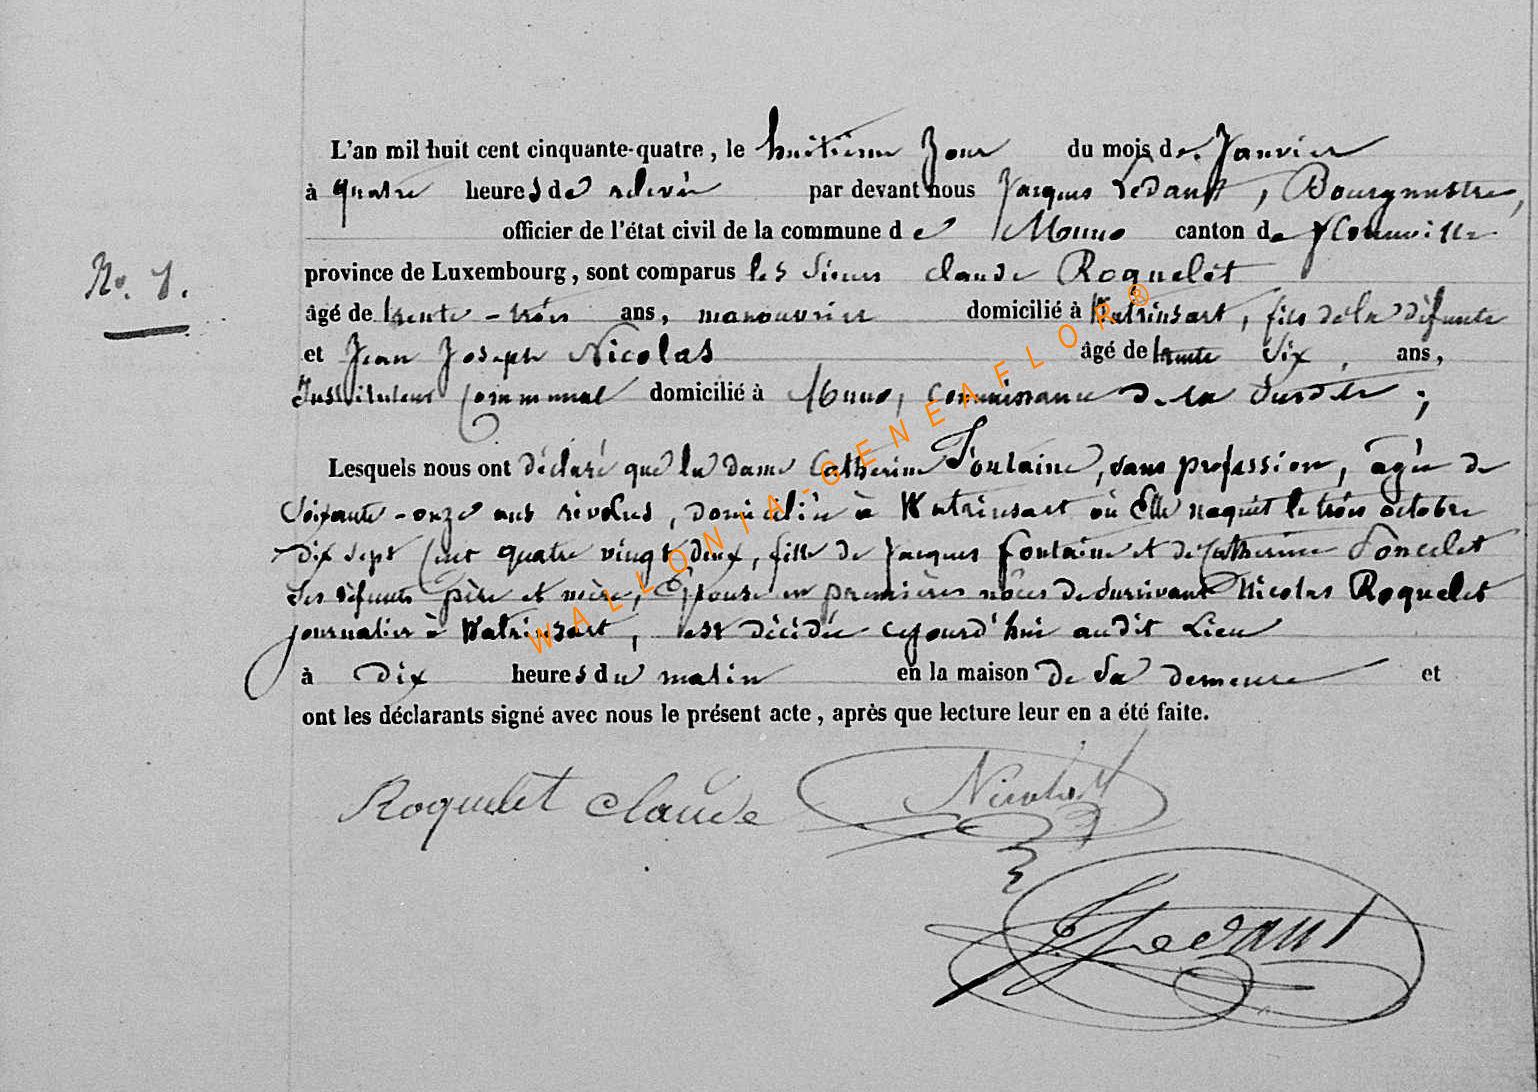 L'an mil huit cent cinquante-quatre, le huitième Jour du mois de Janvier
à quatre heures de relevée par devant nous Jacques Ledant, Bourgmestre,
officier de l'état civil de la commune de Muno canton de Florenville
province de Luxembourg, sont comparus les Sieurs Claude Roquelet
No. 1.
âgé de trente-trois ans, manouvrier domicilié à Watrinsart, fils de la défunte
et Jean Joseph Nicolas âgé de trente six ans,
Instituteur Communal domicilié à Muno, Connaissance de la Susdite ;
Lesquels nous ont déclaré que la dame Catherine Fontaine, sans profession, agée de
Soixante-onze ans révolus, domiciliée à Watrinsart où Elle naquit le trois octobre
dix sept Cent quatre vingt deux, fille de Jacques Fontaine et de Catherine Poncelet
Ses défunts père et mère, Epouse en premières nôces de survivant Nicolas Roquelet
journalier à Watrinsart, est décédée cejourd'hui audit Lieu
à Dix heures du matin en la maison de Sa demeure et
ont les déclarants signé avec nous le présent acte, après que lecture leur en a été faite.
Roquelet Claude Nicolas
J. Ledant
WALLONIA-GENEAFLOR®